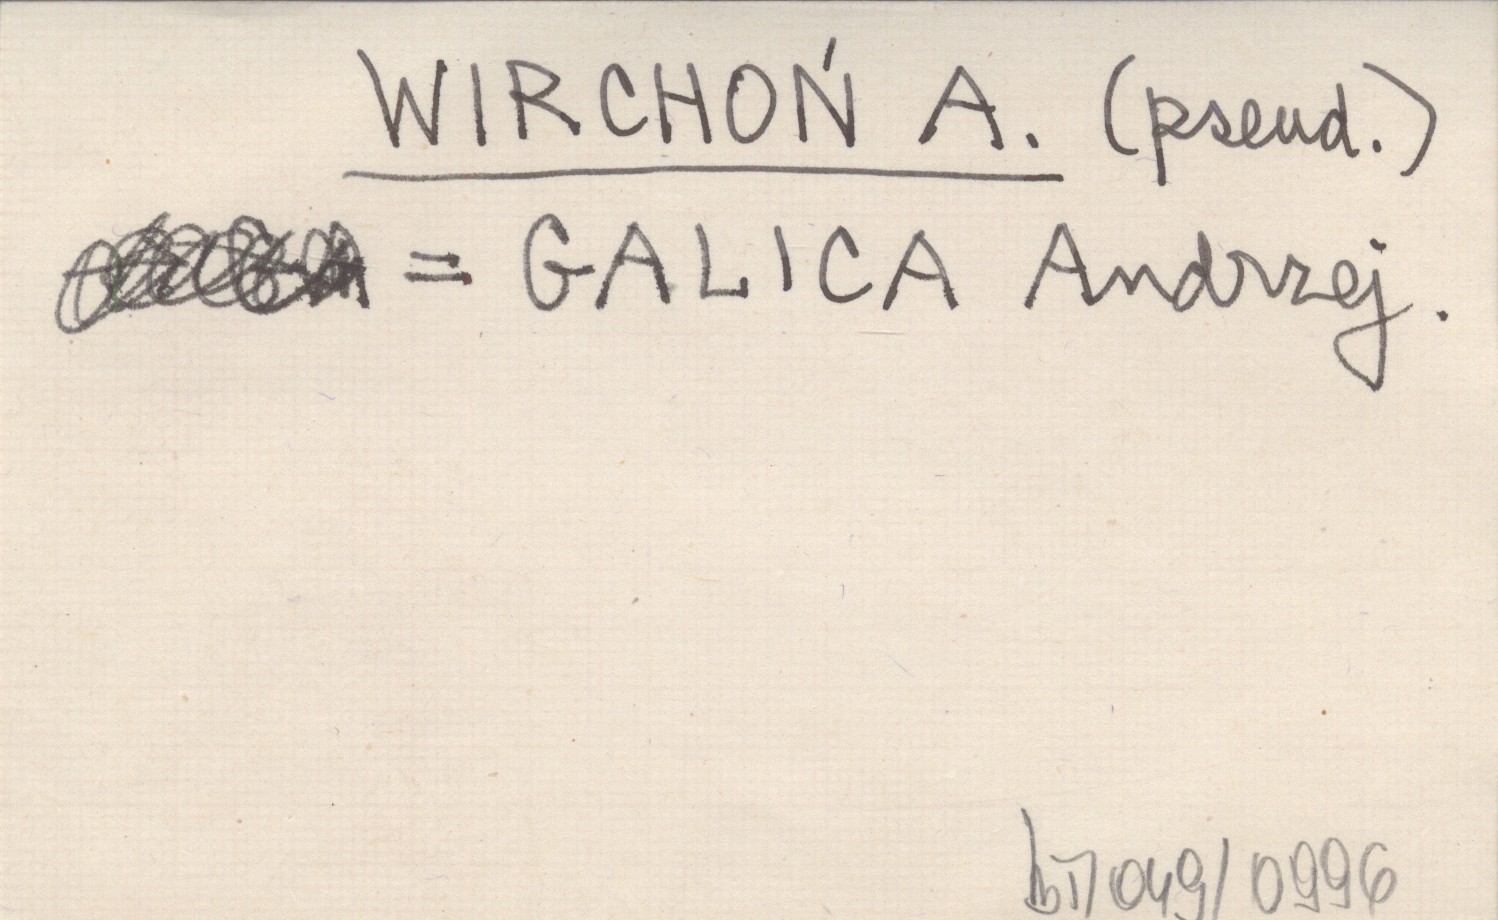 WIRCHOŃ A. (pseud.)
= GALICA Andrzej.
049/0996